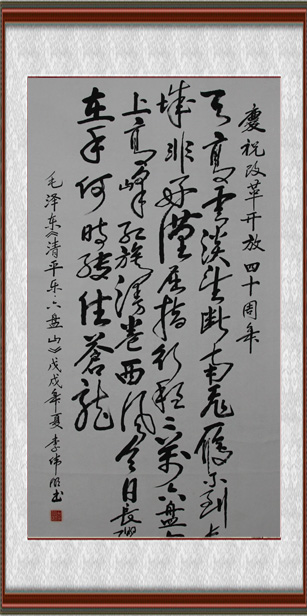 慶祝改革开放四十周年
天高雲淡望断南飞雁不到长
城非好漢屈指行程二萬六盘山
上高峰红旗漫卷西风今日長缨
在手何时缚住蒼龙
毛泽东《清平乐六盘山》戊戌年夏李